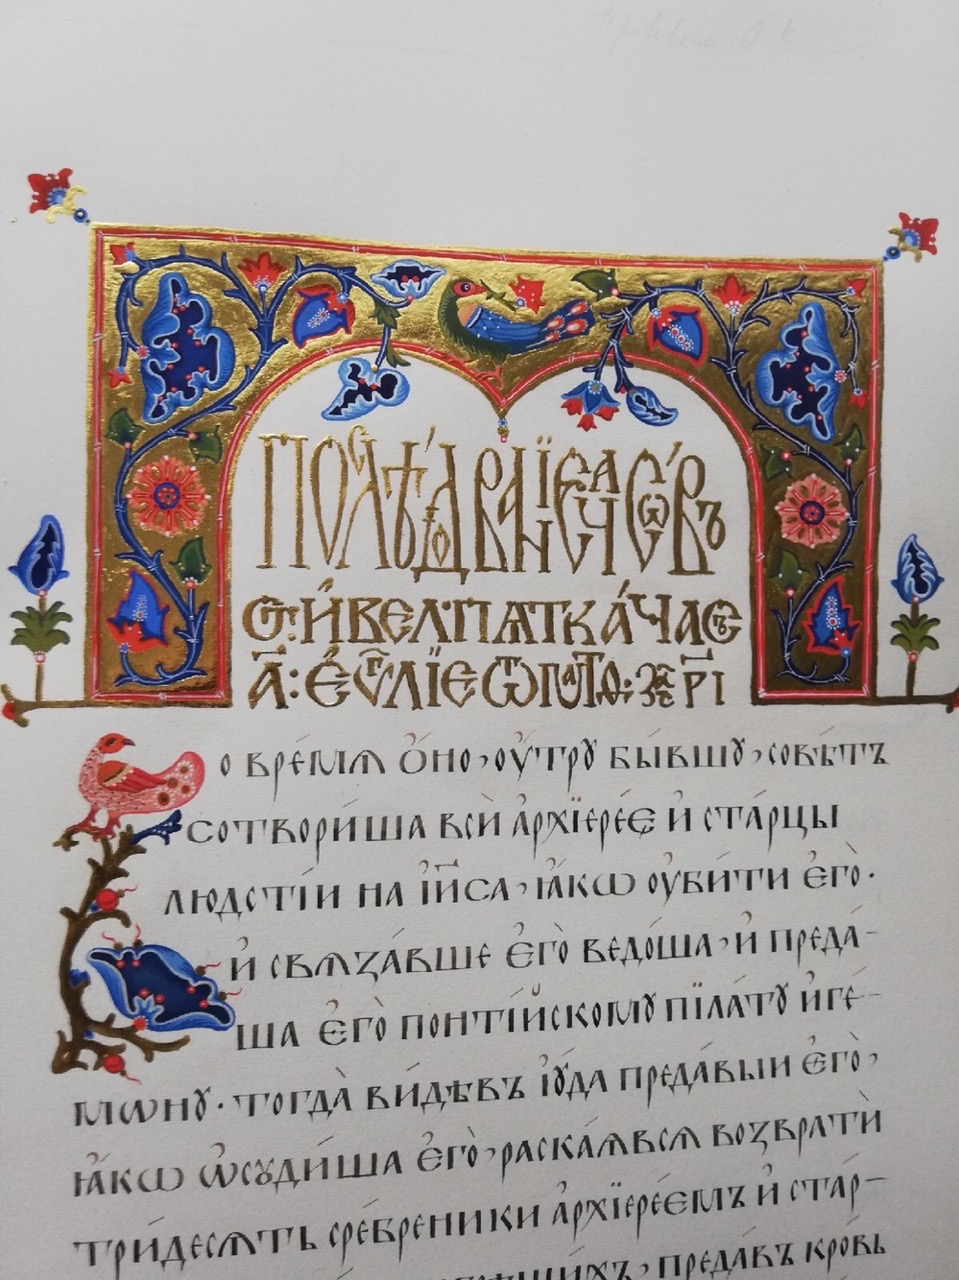 Послѣ́дованїе часѡ́въ
ст҃: и҆ вел: пѧтка́ часъ
а҃: є҆ѵⷢ҇лїе ѿ маⷮѳ: заⷱ҇ р҃і
Во вре́мѧ ѻ҆́но, ѹ҆́трꙋ бы́вшꙋ, совѣ́тъ
сотвори́ша всѝ а҆рхїере́є и҆ ста́рцы
людсті́и на і҆и҃са, ꙗ҆́кѡ ѹ҆би́ти є҆го̀.
и҆ свѧза́вше є҆го̀ ведо́ша, и҆ преда́-
ша є҆го̀ понті́йскомꙋ пїла́тꙋ и҆ге-
мѡнꙋ. тогда̀ ви́дѣвъ і҆ꙋ́да преда́выи є҆го̀,
ꙗ҆́кѡ ѡ҆сꙋди́ша є҆го̀, раска́ѧвсѧ возвратѝ
три́десѧть сре́бреники а҆рхїере́ємъ и҆ ста́р-
преда́въ кро́вь